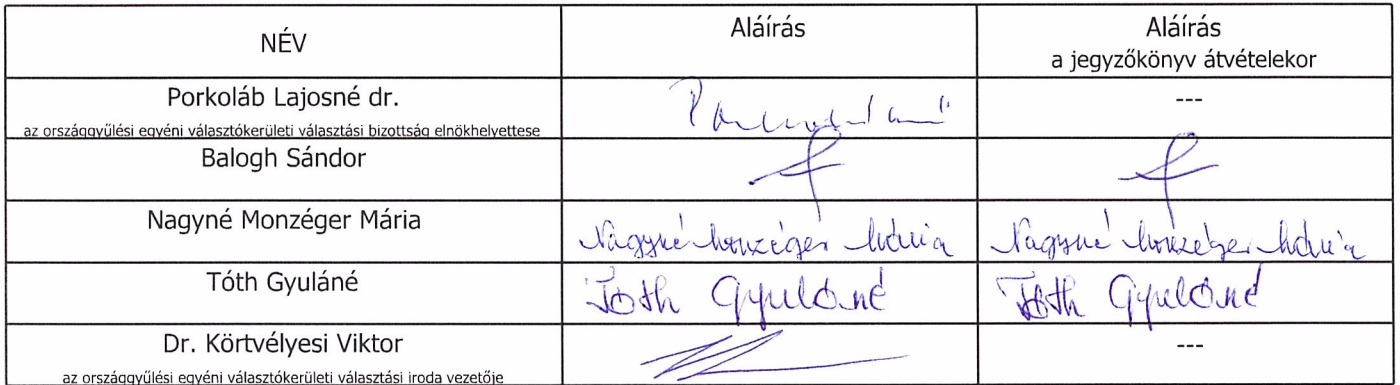 NÉV Aláírás Aláírás
a jegyzőkönyv átvételekor
Porkoláb Lajosné dr. ---
az országgyűlési egyéni választókerületi választási bizottság elnökhelyettese
Balogh Sándor
Nagyné Monzéger Mária Nagyné Monzéger Mária Nagyné Monzéger Mária
Tóth Gyuláné Tóth Gyuláné Tóth Gyuláné
Dr. Körtvélyesi Viktor ---
az országgyűlési egyéni választókerületi választási iroda vezetője